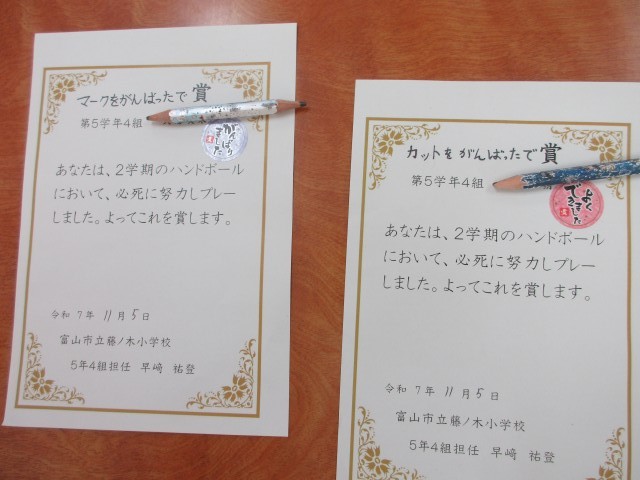 マークをがんばったで賞
第5学年4組
がんばりました
あなたは、2学期のハンドボール
において、必死に努力しプレー
しました。よってこれを賞します。
令和7年11月5日
富山市立藤ノ木小学校
5年4組担任 早﨑 祐登
カットをがんばったで賞
第5学年4組
よくできました
あなたは、2学期のハンドボール
において、必死に努力しプレー
しました。よってこれを賞します。
令和7年11月5日
富山市立藤ノ木小学校
5年4組担任 早﨑 祐登